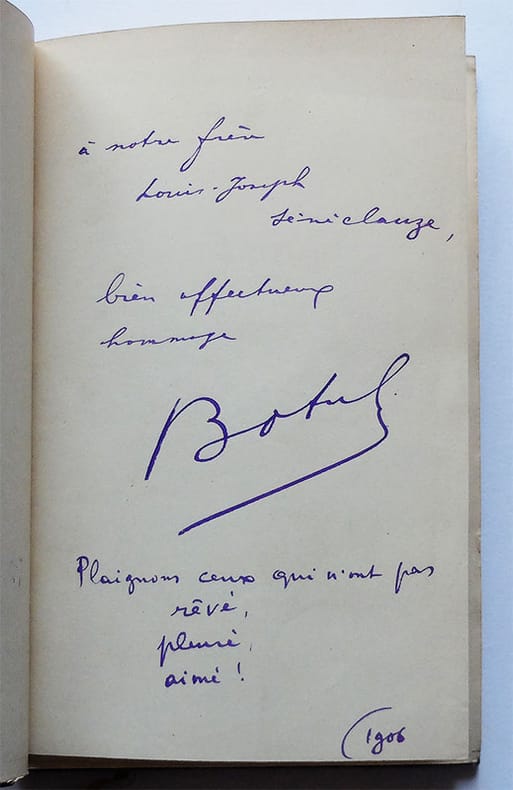 à notre frère
Louis-Joseph
Séniclauze,
bien affectueux
hommage
Botul
Plaignons ceux qui n'ont pas
rêvé,
pleuré,
aimé !
(1906